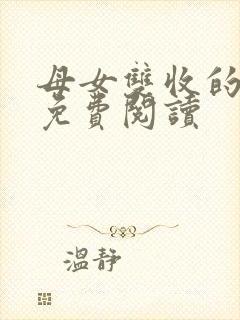 母女雙收的
免費閱讀
溫靜